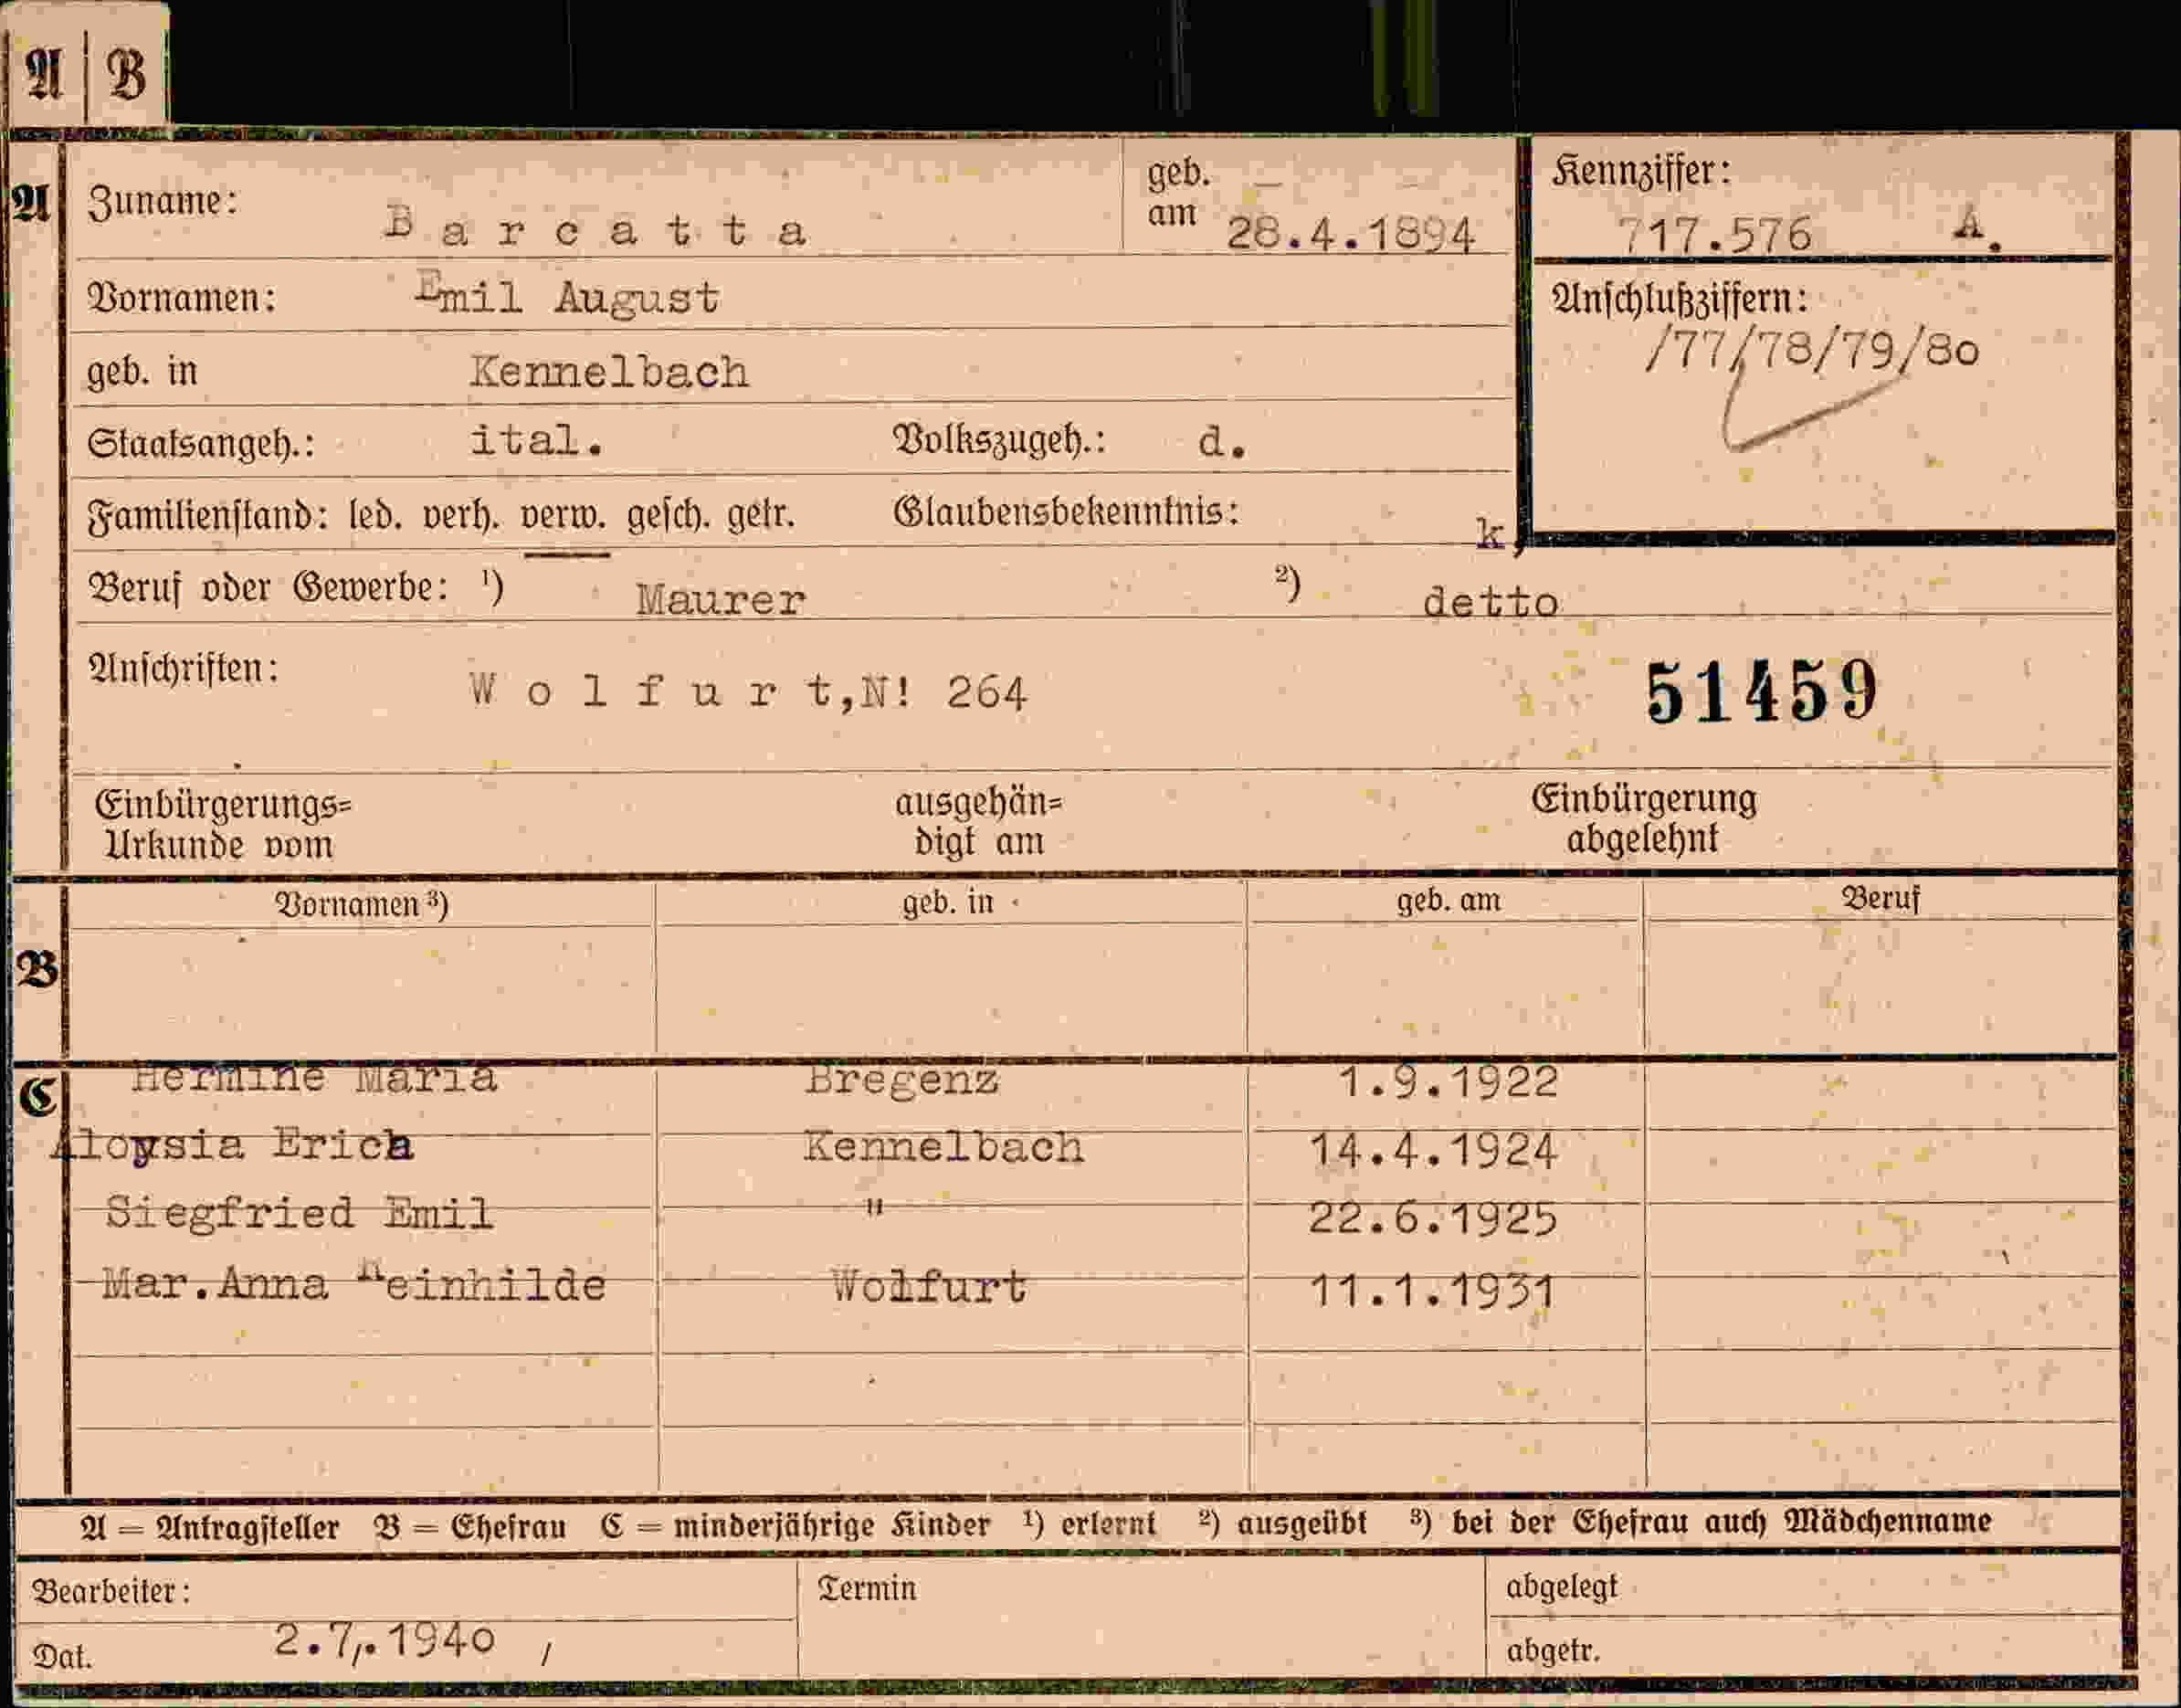 A | B
A Zuname: Barcatta geb. am 28.4.1894 Kennziffer: 717.576 A.
Vornamen: Emil August Anschlußziffern: /77/78/79/80
geb. in Kennelbach
Staatsangeh.: ital. Volkszugeh.: d.
Familienstand: led. verh. verw. gesch. getr. Glaubensbekenntnis: k,
Beruf oder Gewerbe: ¹) Maurer ²) detto
Anschriften: Wolfurt,N! 264 51459
Einbürgerungs= ausgehän= Einbürgerung
Urkunde vom digt am abgelehnt
Vornamen ³) geb. in geb. am Beruf
B
C Hermine Maria Bregenz 1.9.1922
Aloysia Erica Kennelbach 14.4.1924
Siegfried Emil " 22.6.1925
Mar.Anna Reinhilde Wolfurt 11.1.1931
A = Antragsteller B = Ehefrau C = minderjährige Kinder ¹) erlernt ²) ausgeübt ³) bei der Ehefrau auch Mädchenname
Bearbeiter: Termin abgelegt
Dat. 2.7,.1940 / abgetr.